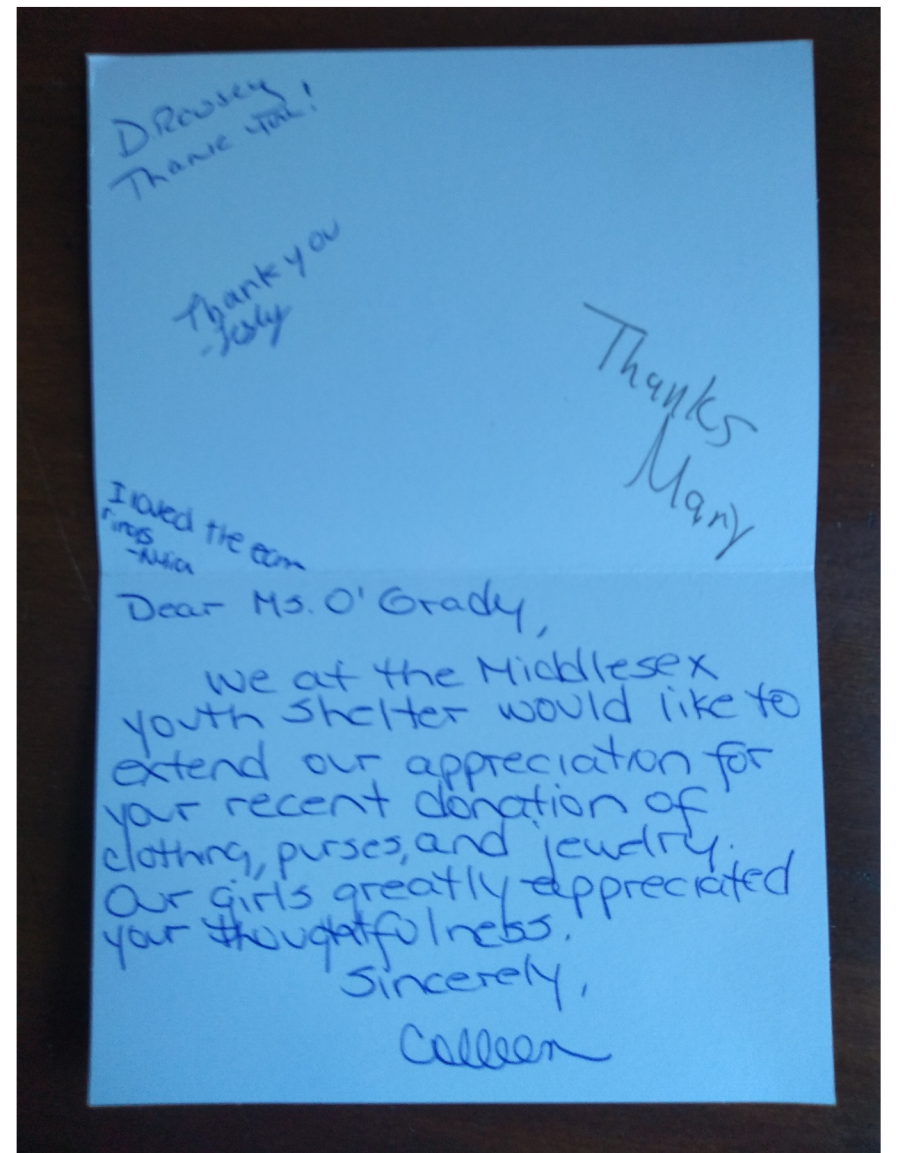 DRousey
Thank you!
Thank you
Thanks
Mary
I loved the ear
rings
Dear Ms. O'Grady,
We at the Middlesex
youth shelter would like to
extend our appreciation for
your recent donation of
clothing, purses, and jewelry.
Our girls greatly appreciated
your thoughtfulness.
Sincerely,
Colleen